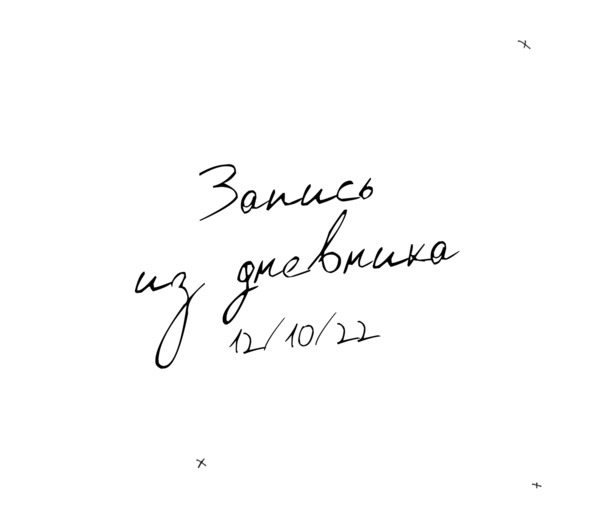 Запись
из дневника
12/10/22